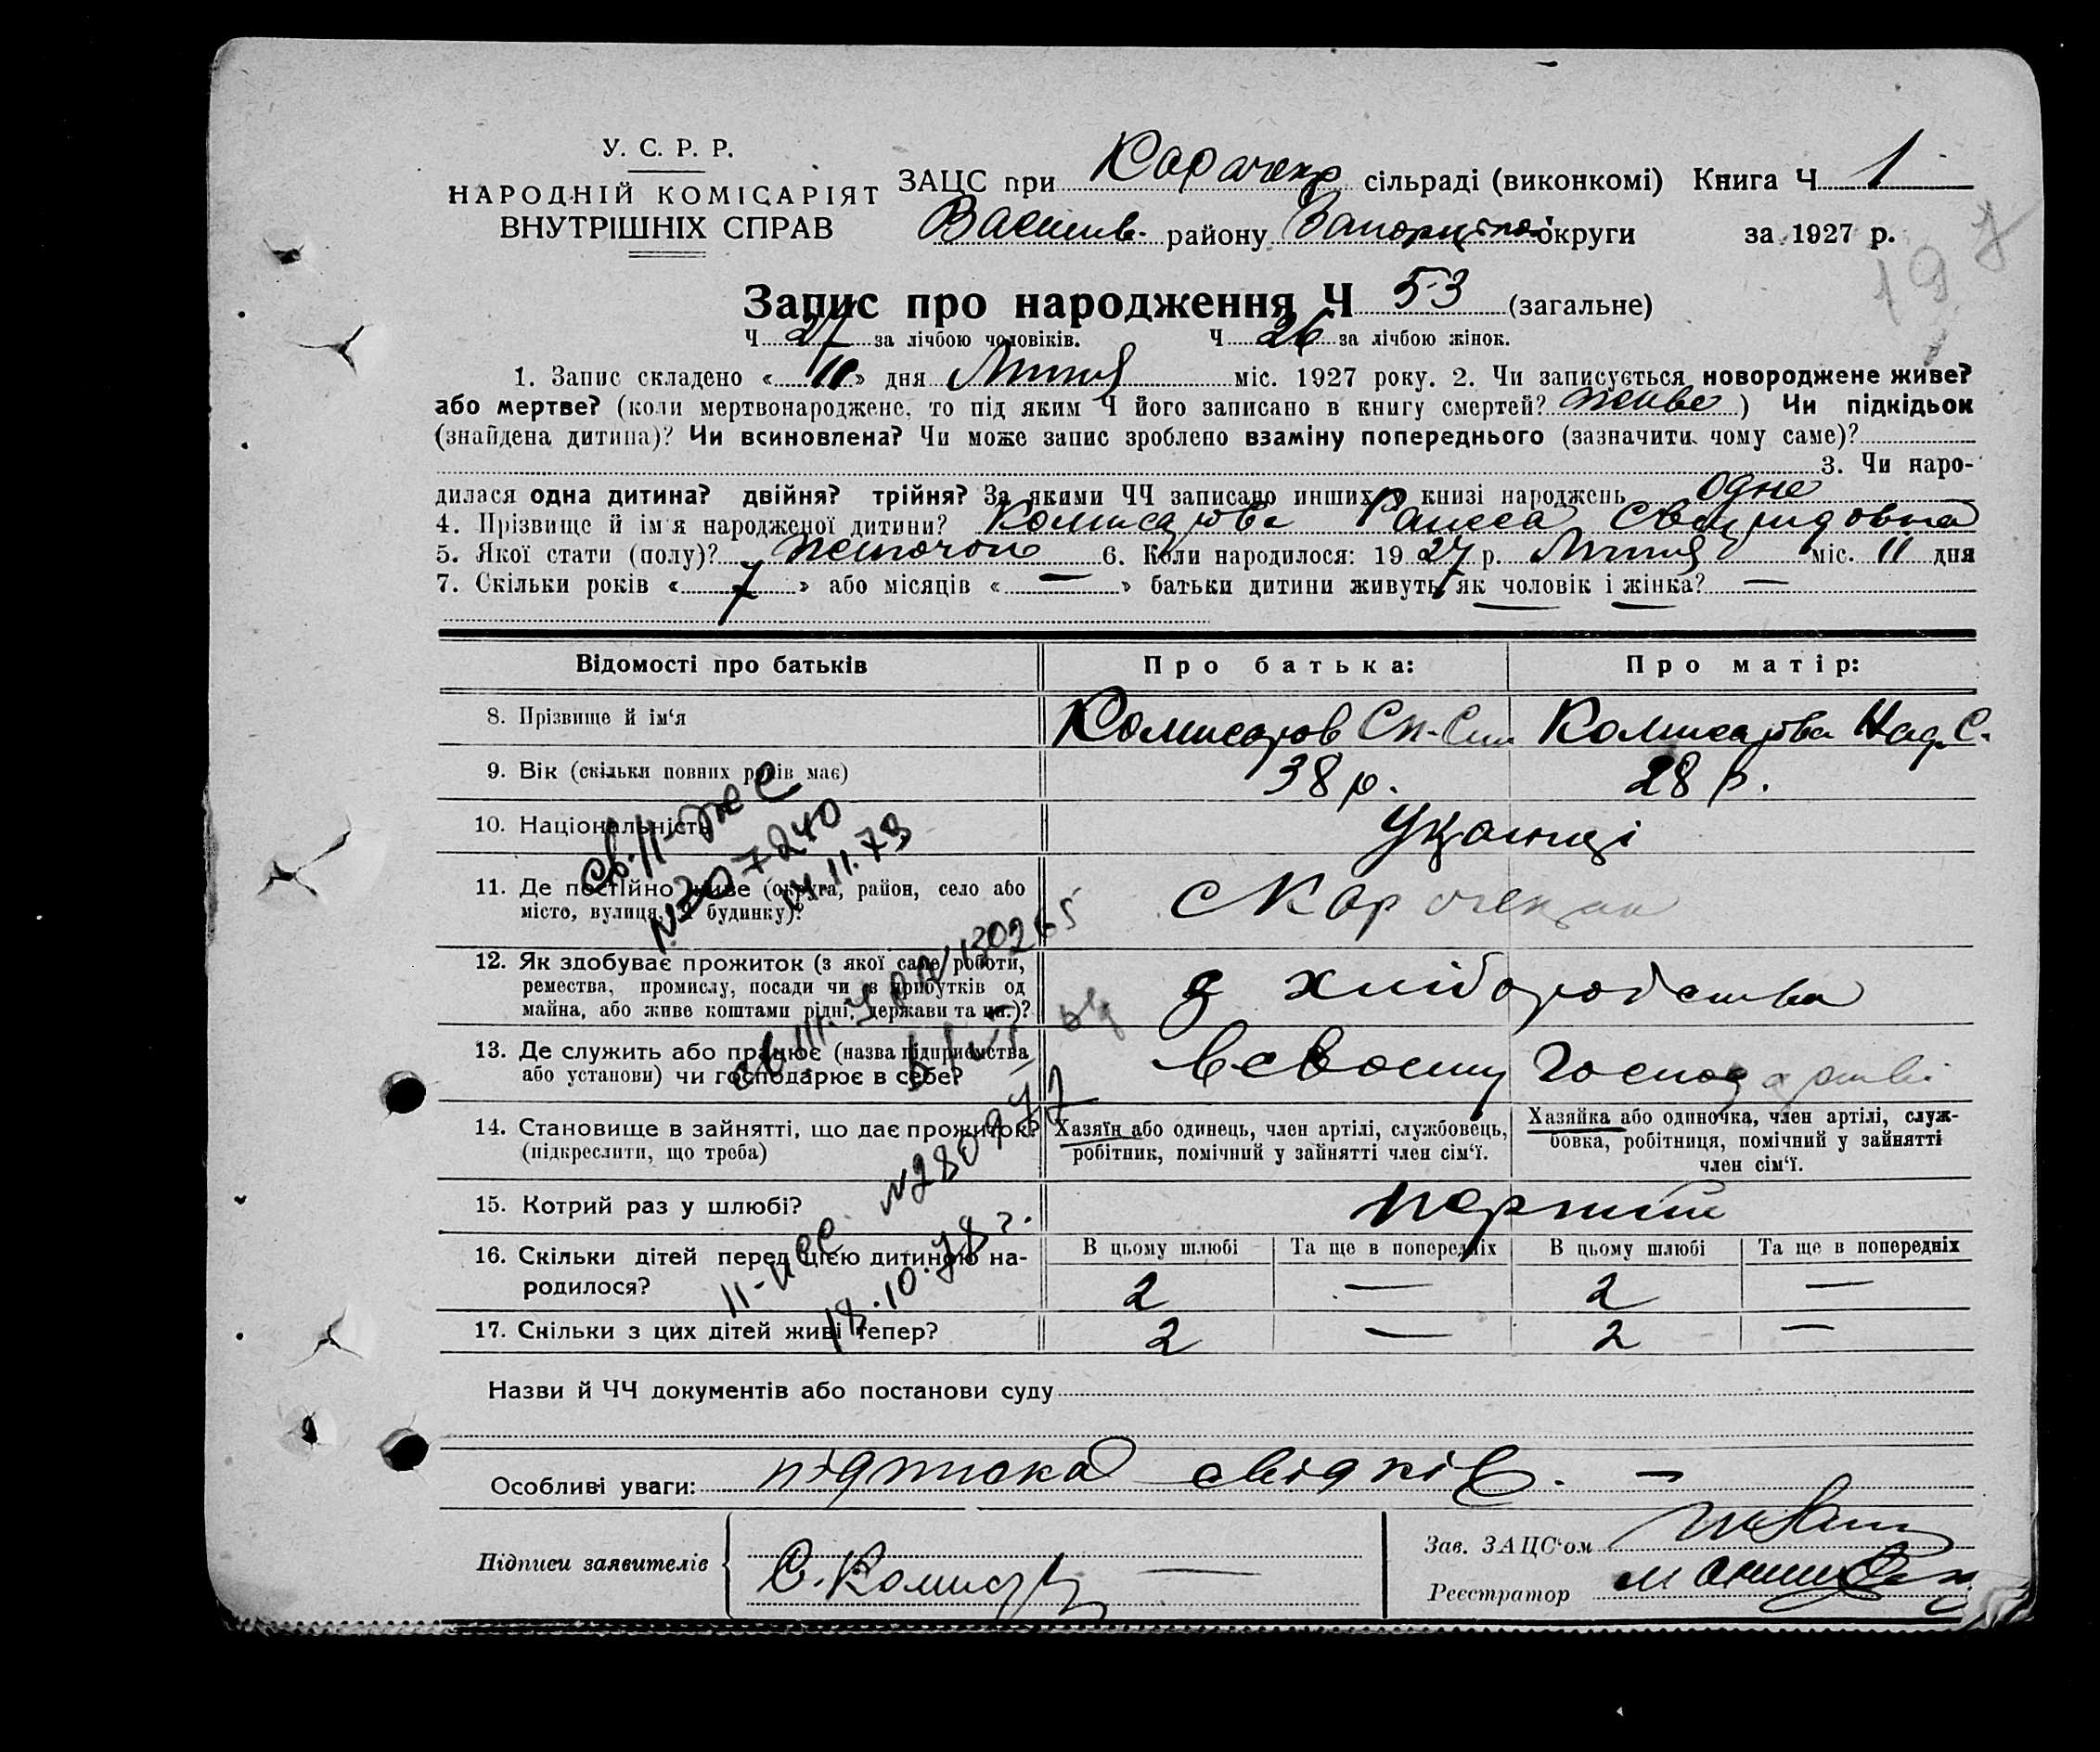 У. С. Р. Р.
НАРОДНІЙ КОМІСАРІЯТ
ВНУТРІШНІХ СПРАВ
ЗАЦС при сільраді (виконкомі) Книга Ч 1
Васинів. району округи за 1927 р.
197
Запис про народження Ч 53 (загальне)
Ч 27 за лічбою чоловіків. Ч 26 за лічбою жінок.
1. Запис складено « » дня Липня міс. 1927 року. 2. Чи записується новороджене живе?
або мертве? (коли мертвонароджене, то під яким Ч його записано в книгу смертей? живе ) Чи підкідьок
(знайдена дитина)? Чи всиновлена? Чи може запис зроблено взаміну попереднього (зазначити чому саме)?
3. Чи наро-
дилася одна дитина? двійня? трійня? За якими ЧЧ записано инших у книзі народжень одне
4. Прізвище й ім'я народженої дитини? Комисарова Раиса Свиридовна
5. Якої стати (полу)? жіночої 6. Коли народилося: 1927 р. Липня міс. 11 дня
7. Скільки років « 7 » або місяців « — » батьки дитини живуть як чоловік і жінка? —
Відомості про батьків
Про батька:
Про матір:
8. Прізвище й ім'я
Комисаров Комисарова Над. С.
9. Вік (скільки повних років має)
38 р. 28 р.
10. Національність
Українці
11. Де постійно живе (округа, район, село або
місто, вулиця, Ч будинку)?
12. Як здобуває прожиток (з якої саме роботи,
ремества, промислу, посади чи з прибутків од
майна, або живе коштами рідні, держави та ин.)?
з хліборобства
13. Де служить або працює (назва підприємства
або установи) чи господарює в себе?
в своєму господарстві
14. Становище в зайнятті, що дає прожиток?
(підкреслити, що треба)
Хазяїн або одинець, член артілі, службовець,
робітник, помічний у зайнятті член сім'ї.
Хазяйка або одиночка, член артілі, служ-
бовка, робітниця, помічний у зайнятті
член сім'ї.
15. Котрий раз у шлюбі?
перший
16. Скільки дітей перед цією дитиною на-
родилося?
В цьому шлюбі Та ще в попередніх В цьому шлюбі Та ще в попередніх
2 — 2 —
17. Скільки з цих дітей живі тепер?
2 — 2 —
св. II-
№207240
11.73
св. III-
№280977
18.10.78 г.
Назви й ЧЧ документів або постанови суду
Особливі уваги: підписка свідків. —
Підписи заявителів
С. Комисар
Зав. ЗАЦС'ом
Реєстратор